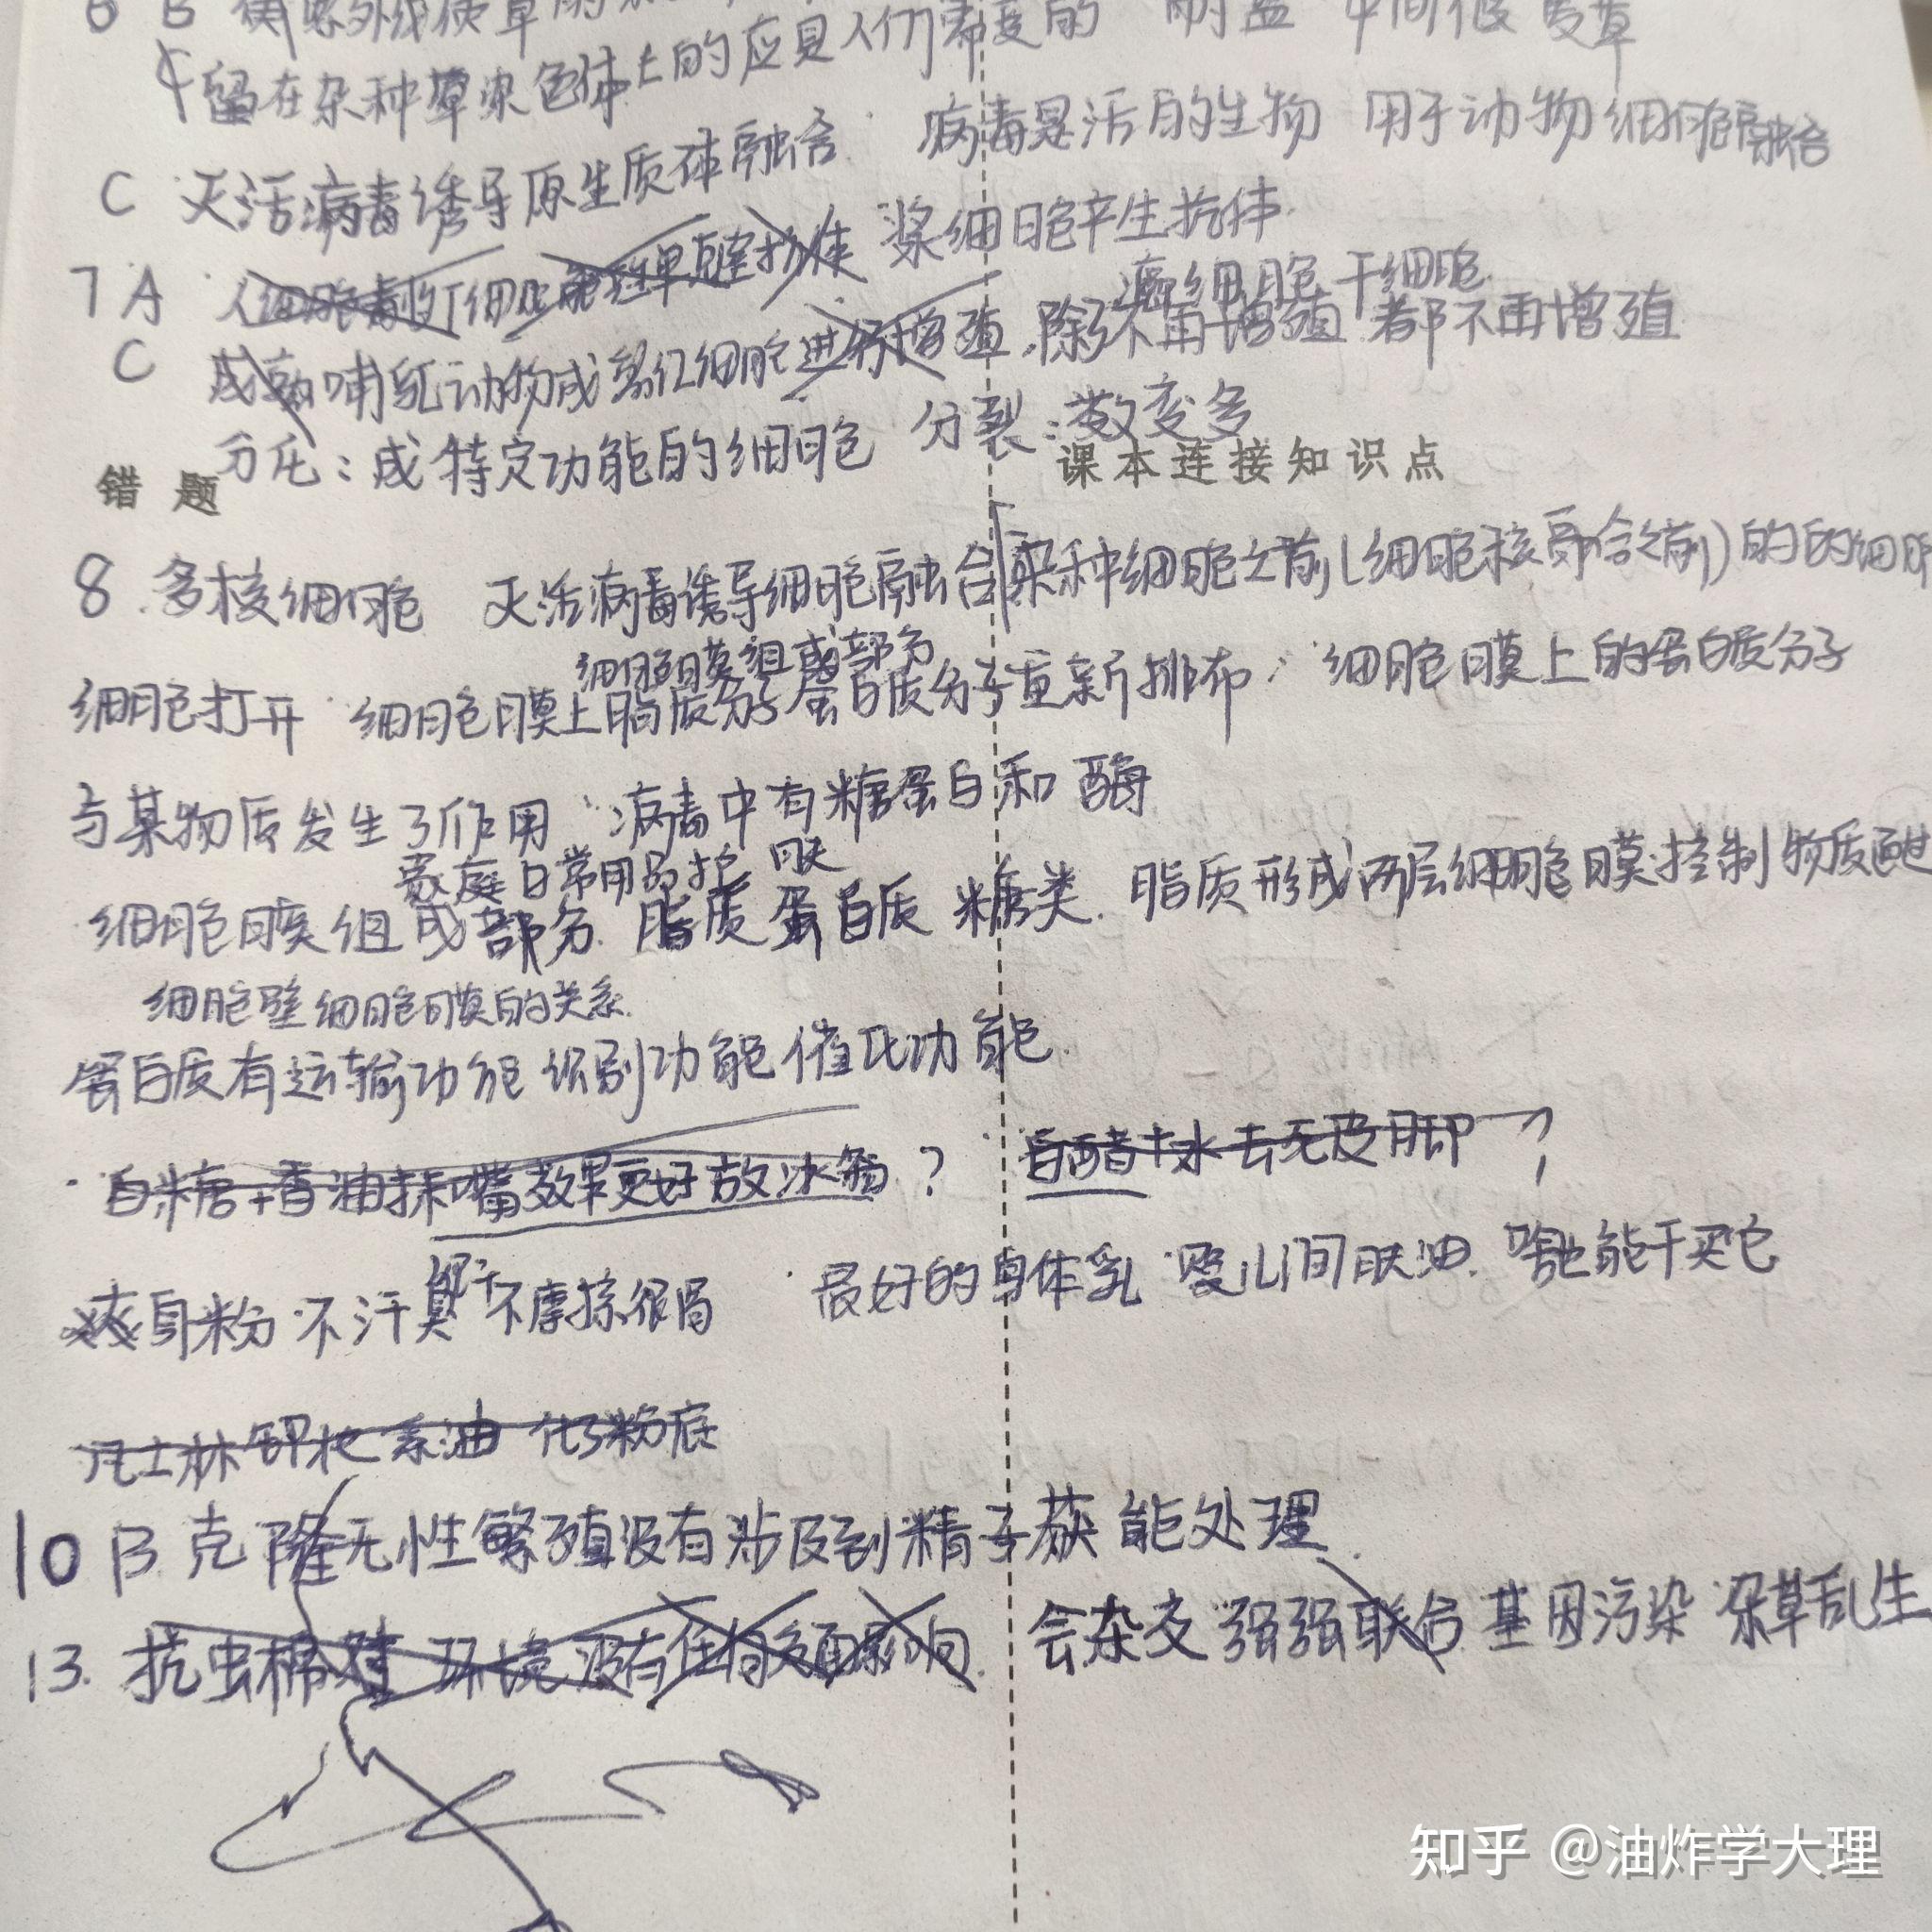 留在杂种草染色体上的应是人们需要的 耐盐
C 灭活病毒诱导原生质体融合 病毒是活的生物 用于动物细胞融合
7 A 浆细胞产生抗体
癌细胞 干细胞
C 成熟哺乳动物成熟红细胞进行增殖 除了不再增殖 都不再增殖
分化:成特定功能的细胞 分裂:数变多
错题 课本连接知识点
8. 多核细胞 灭活病毒诱导细胞融合 杂种细胞之前(细胞核融合之前)的的细胞
细胞膜组成部分
细胞打开 细胞膜上脂质分子 蛋白质分子重新排布 细胞膜上的蛋白质分子
与某物质发生了作用 病毒中有糖蛋白和酶
家庭日常用品护肤
细胞膜组成部分 脂质 蛋白质 糖类 脂质形成两层细胞膜控制物质进
细胞壁细胞膜的关系
蛋白质有运输功能 识别功能 催化功能
白糖+香油抹嘴效果更好放冰箱? 白醋+水去死皮脚?
爽身粉 不汗臭 不摩擦很滑 最好的身体乳 婴儿润肤油
凡士林 卸妆 系油 化了粉底
10 B 克隆无性繁殖没有涉及到精子获能处理
13. 抗虫棉对环境没有任何负面影响 会杂交 强强联合 基因污染 杂草乱生
知乎 @油炸学大理